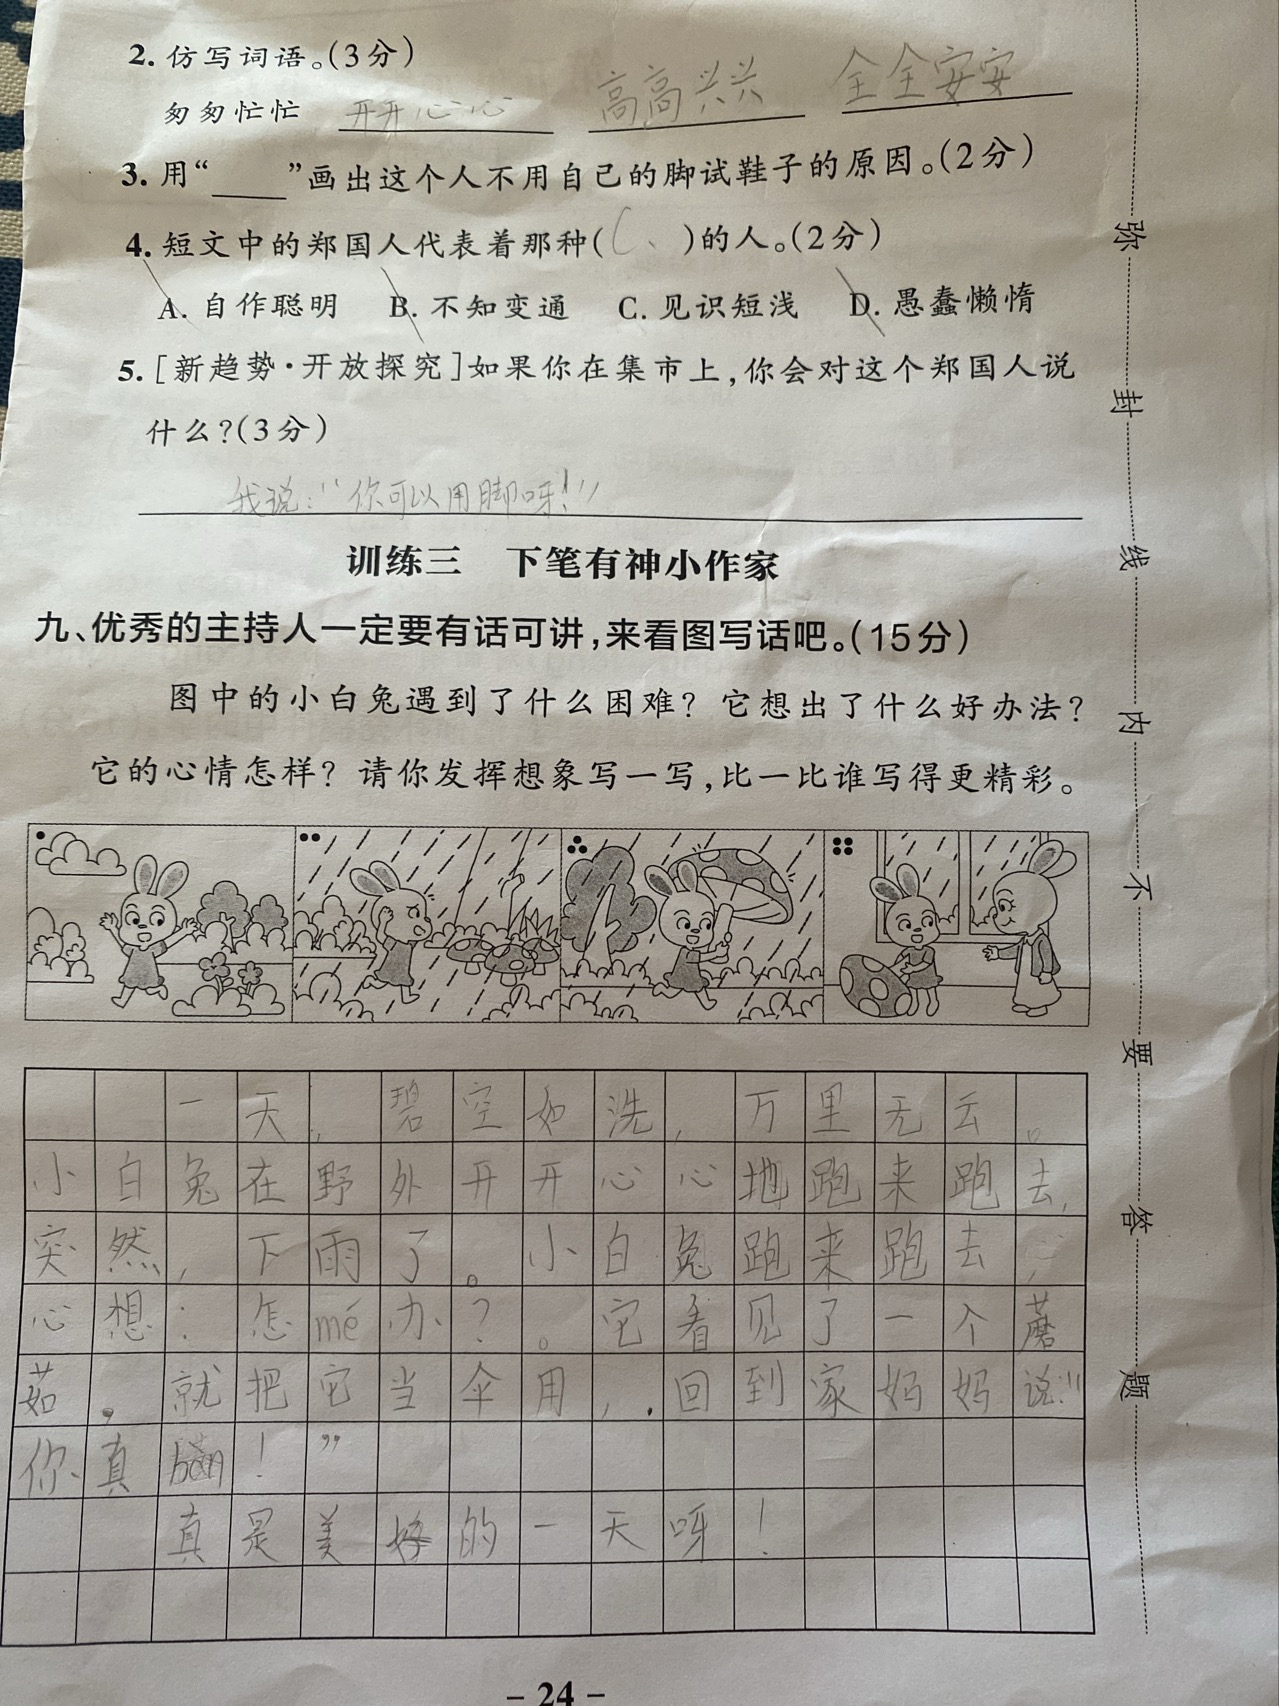 2. 仿写词语。(3分)
匆匆忙忙 开开心心 高高兴兴 全全安安
3. 用“____”画出这个人不用自己的脚试鞋子的原因。(2分)
4. 短文中的郑国人代表着那种( C、 )的人。(2分)
A. 自作聪明 B. 不知变通 C. 见识短浅 D. 愚蠢懒惰
5. [新趋势·开放探究]如果你在集市上,你会对这个郑国人说
什么?(3分)
我说:“你可以用脚呀!”
训练三 下笔有神小作家
九、优秀的主持人一定要有话可讲,来看图写话吧。(15分)
图中的小白兔遇到了什么困难? 它想出了什么好办法?
它的心情怎样? 请你发挥想象写一写,比一比谁写得更精彩。
一天,碧空如洗,万里无云。
小白兔在野外开开心心地跑来跑去,
突然,下雨了。小白兔跑来跑去,
心想:怎mé办?。它看见了一个蘑
菇。就把它当伞用,.回到家妈妈说:“
你真bàn!”
真是美好的一天呀!
- 24 -
弥封线内不要答题